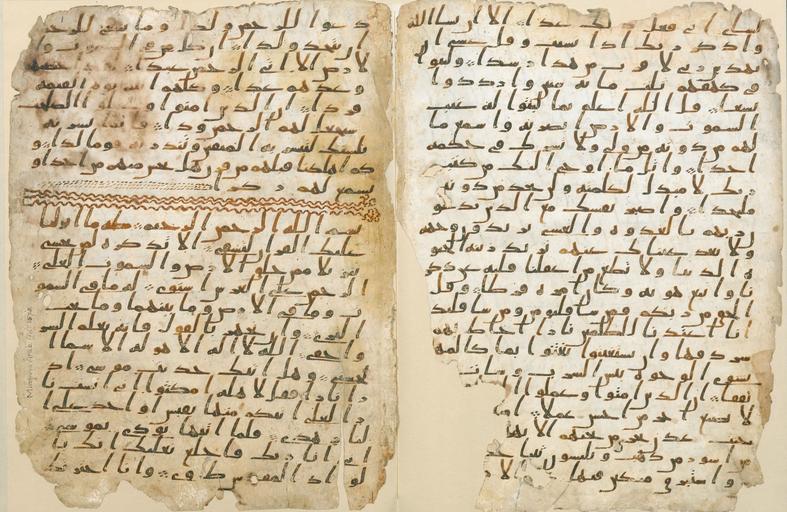 لشاي اني فعل ذلك غدا الا ان يشا الله
واذكر ربك اذا نسيت وقل عسى ا
يهدين ربي لاقرب من هذا رشدا ولبثوا
في كهفهم ثلث مايه سنين وازدادوا
تسعا قل الله اعلم بما لبثوا له غيب
السموت والارض ابصر به واسمع ما
لهم من دونه من ولي ولا يشرك في حكمه
احدا واتل ما اوحي اليك من كتب
ربك لا مبدل لكلمته ولن تجد من دونه
ملتحدا واصبر نفسك مع الذين يدعو
ربهم بالغدوه والعشي يريدون وجهه
ولا تعد عيناك عنهم تريد زينه الحيو
ه الدنيا ولا تطع من اغفلنا قلبه عن ذكر
نا واتبع هويه وكان امره فرطا وقل
الحق من ربكم فمن شا فليومن ومن شا فليكفر
انا اعتدنا للظلمين نارا احاط بهم
سردقها وان يستغيثوا يغثوا بما كالمهل
يشوي الوجوه بئس الشرب وسات
تفقا ان الذين امنوا وعملوا ا
لا نضيع اجر من احسن عملا
جنت عدن تجري من تحتهم الانه
من اسور من ذهب ويلبسون ثيبا خضر
واستبرق متكين فيها
دعوا للرحمن ولدا وما ينبغي للرحمن
ان يتخذ ولدا ان كل من في السموت وا
لارض الا اتي الرحمن عبدا لقد احصيهم
وعدهم عدا وكلهم اتيه يوم القيمه
فردا ان الذين امنوا وعملوا الصلحت
سيجعل لهم الرحمن ودا فانما يسرنه
بلسنك لتبشر به المتقين وتنذر به قوما لدا و
كم اهلكنا قبلهم من قرن هل تحس منهم من احد او
تسمع لهم ركزا
بسم الله الرحمن الرحيم طه ما انزلنا
عليك القران لتشقى الا تذكره لمن يخشى
تنزيلا ممن خلق الارض والسموت العلى
الرحمن على العرش استوى له ما في السمو
ت وما في الارض وما بينهما وما تحت
الثرى وان تجهر بالقول فانه يعلم السر
واخفى الله لا اله الا هو له الاسما ا
لحسنى وهل اتيك حديث موسى اذ
را نارا فقال لاهله امكثوا اني انست نا
را لعلي اتيكم منها بقبس او اجد على ا
لنار هدى فلما اتيها نودي يموسى
اني انا ربك فاخلع نعليك انك با
لواد المقدس طوى وانا اخترتك